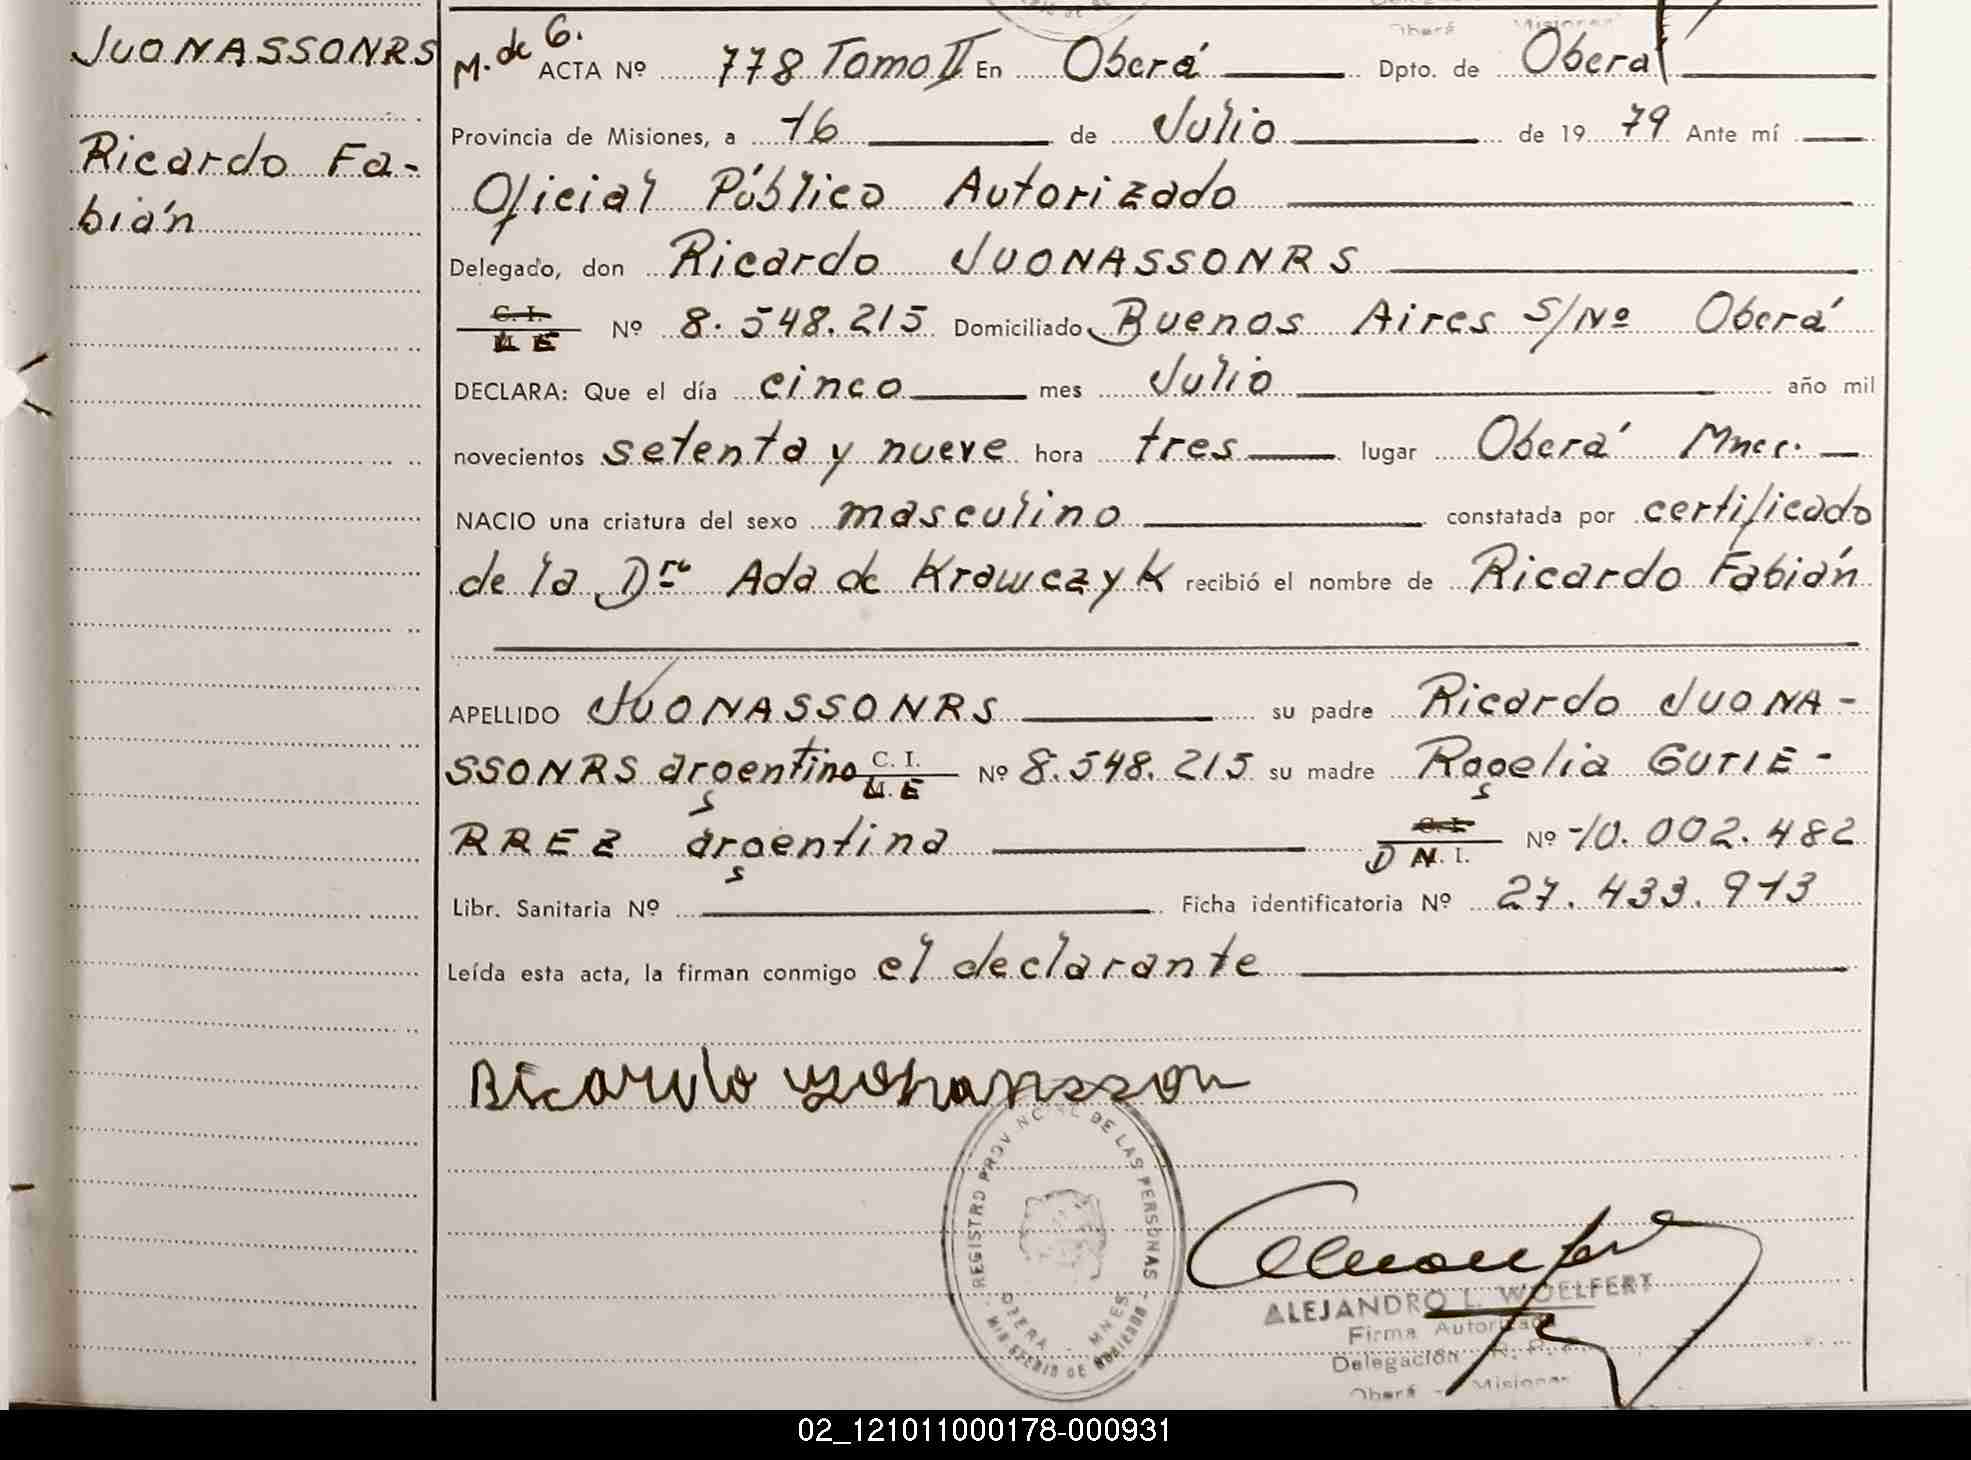 JUONASSONRS
Ricardo Fa-
bián
M. de G.
ACTA Nº 778 Tomo II En Oberá Dpto. de Oberá
Provincia de Misiones, a 16 de Julio de 1979 Ante mí
Oficial Público Autorizado
Delegado, don Ricardo JUONASSONRS
C. I. Nº 8.548.215 Domiciliado Buenos Aires S/Nº Oberá
L E
DECLARA: Que el día cinco mes Julio año mil
novecientos setenta y nueve hora tres lugar Oberá Mnes.
NACIO una criatura del sexo masculino constatada por certificado
de la Dra Ada de Krawczyk recibió el nombre de Ricardo Fabián
APELLIDO JUONASSONRS su padre Ricardo JUONA-
SSONRS argentino C. I. Nº 8.548.215 su madre Rogelia GUTIE-
L. E
RREZ argentina C. I. Nº 10.002.482
D N. I.
Libr. Sanitaria Nº Ficha identificatoria Nº 27.433.913
Leída esta acta, la firman conmigo el declarante
Ricardo
REGISTRO PROVINCIAL DE LAS PERSONAS
OBERA MNES
MINISTERIO DE GOBIERNO
ALEJANDRO L. WOELFERT
Firma Autorizada
Delegación R. P. P.
Oberá - Misiones
02_121011000178-000931